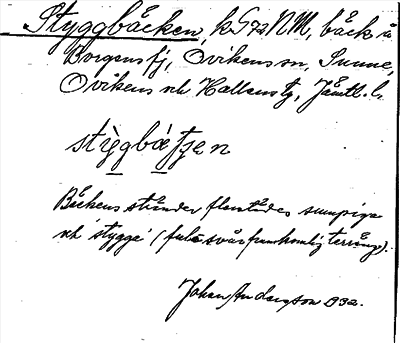 Styggbäcken, k G72 NM, bäck i
Borgensfj, Ovikens sn, Sunne,
Ovikens och Hallens tg, Jämtl. l.
Bäckens stränder flerstädes sumpiga
och 'stygga' (fula svårframkomlig terräng).
Johan Andersson 1932.